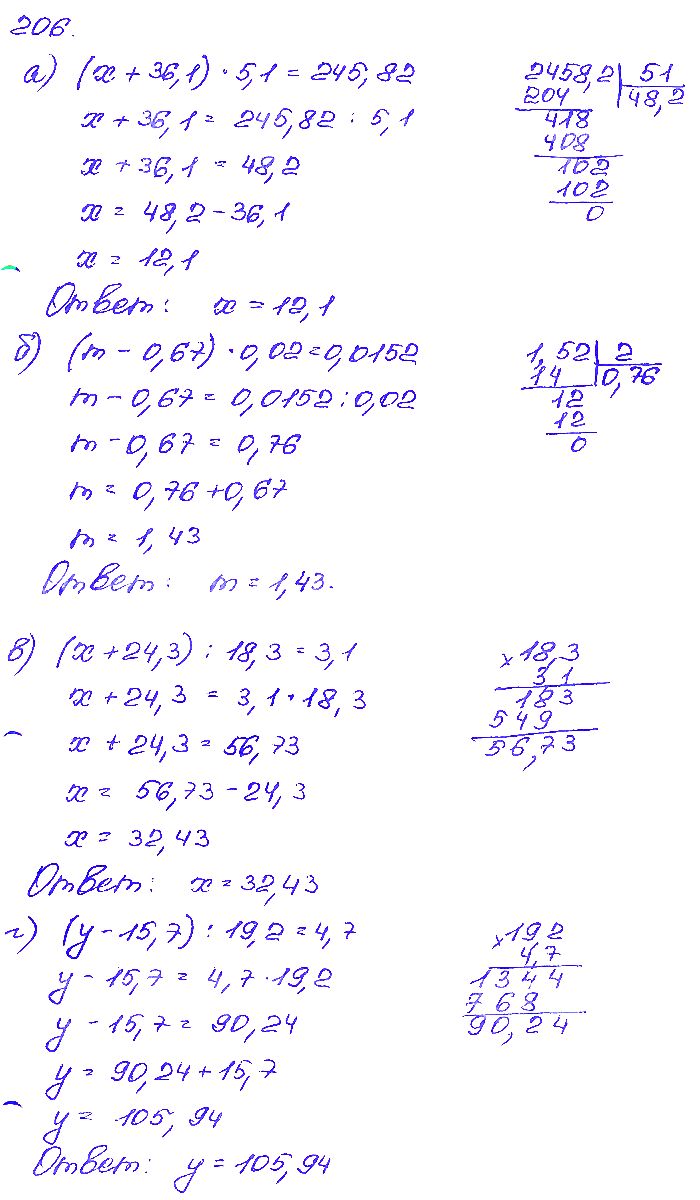 206.
а) (x + 36,1) · 5,1 = 245,82
x + 36,1 = 245,82 : 5,1
x + 36,1 = 48,2
x = 48,2 - 36,1
x = 12,1
Ответ: x = 12,1
2458,2 | 51
204 48,2
418
408
102
102
0
б) (m - 0,67) · 0,02 = 0,0152
m - 0,67 = 0,0152 : 0,02
m - 0,67 = 0,76
m = 0,76 + 0,67
m = 1,43
Ответ: m = 1,43.
1,52 | 2
14 0,76
12
12
0
в) (x + 24,3) : 18,3 = 3,1
x + 24,3 = 3,1 · 18,3
x + 24,3 = 56,73
x = 56,73 - 24,3
x = 32,43
Ответ: x = 32,43
× 18,3
3,1
183
549
56,73
г) (y - 15,7) : 19,2 = 4,7
y - 15,7 = 4,7 · 19,2
y - 15,7 = 90,24
y = 90,24 + 15,7
y = 105,94
Ответ: y = 105,94
× 192
4,7
1344
768
90,24